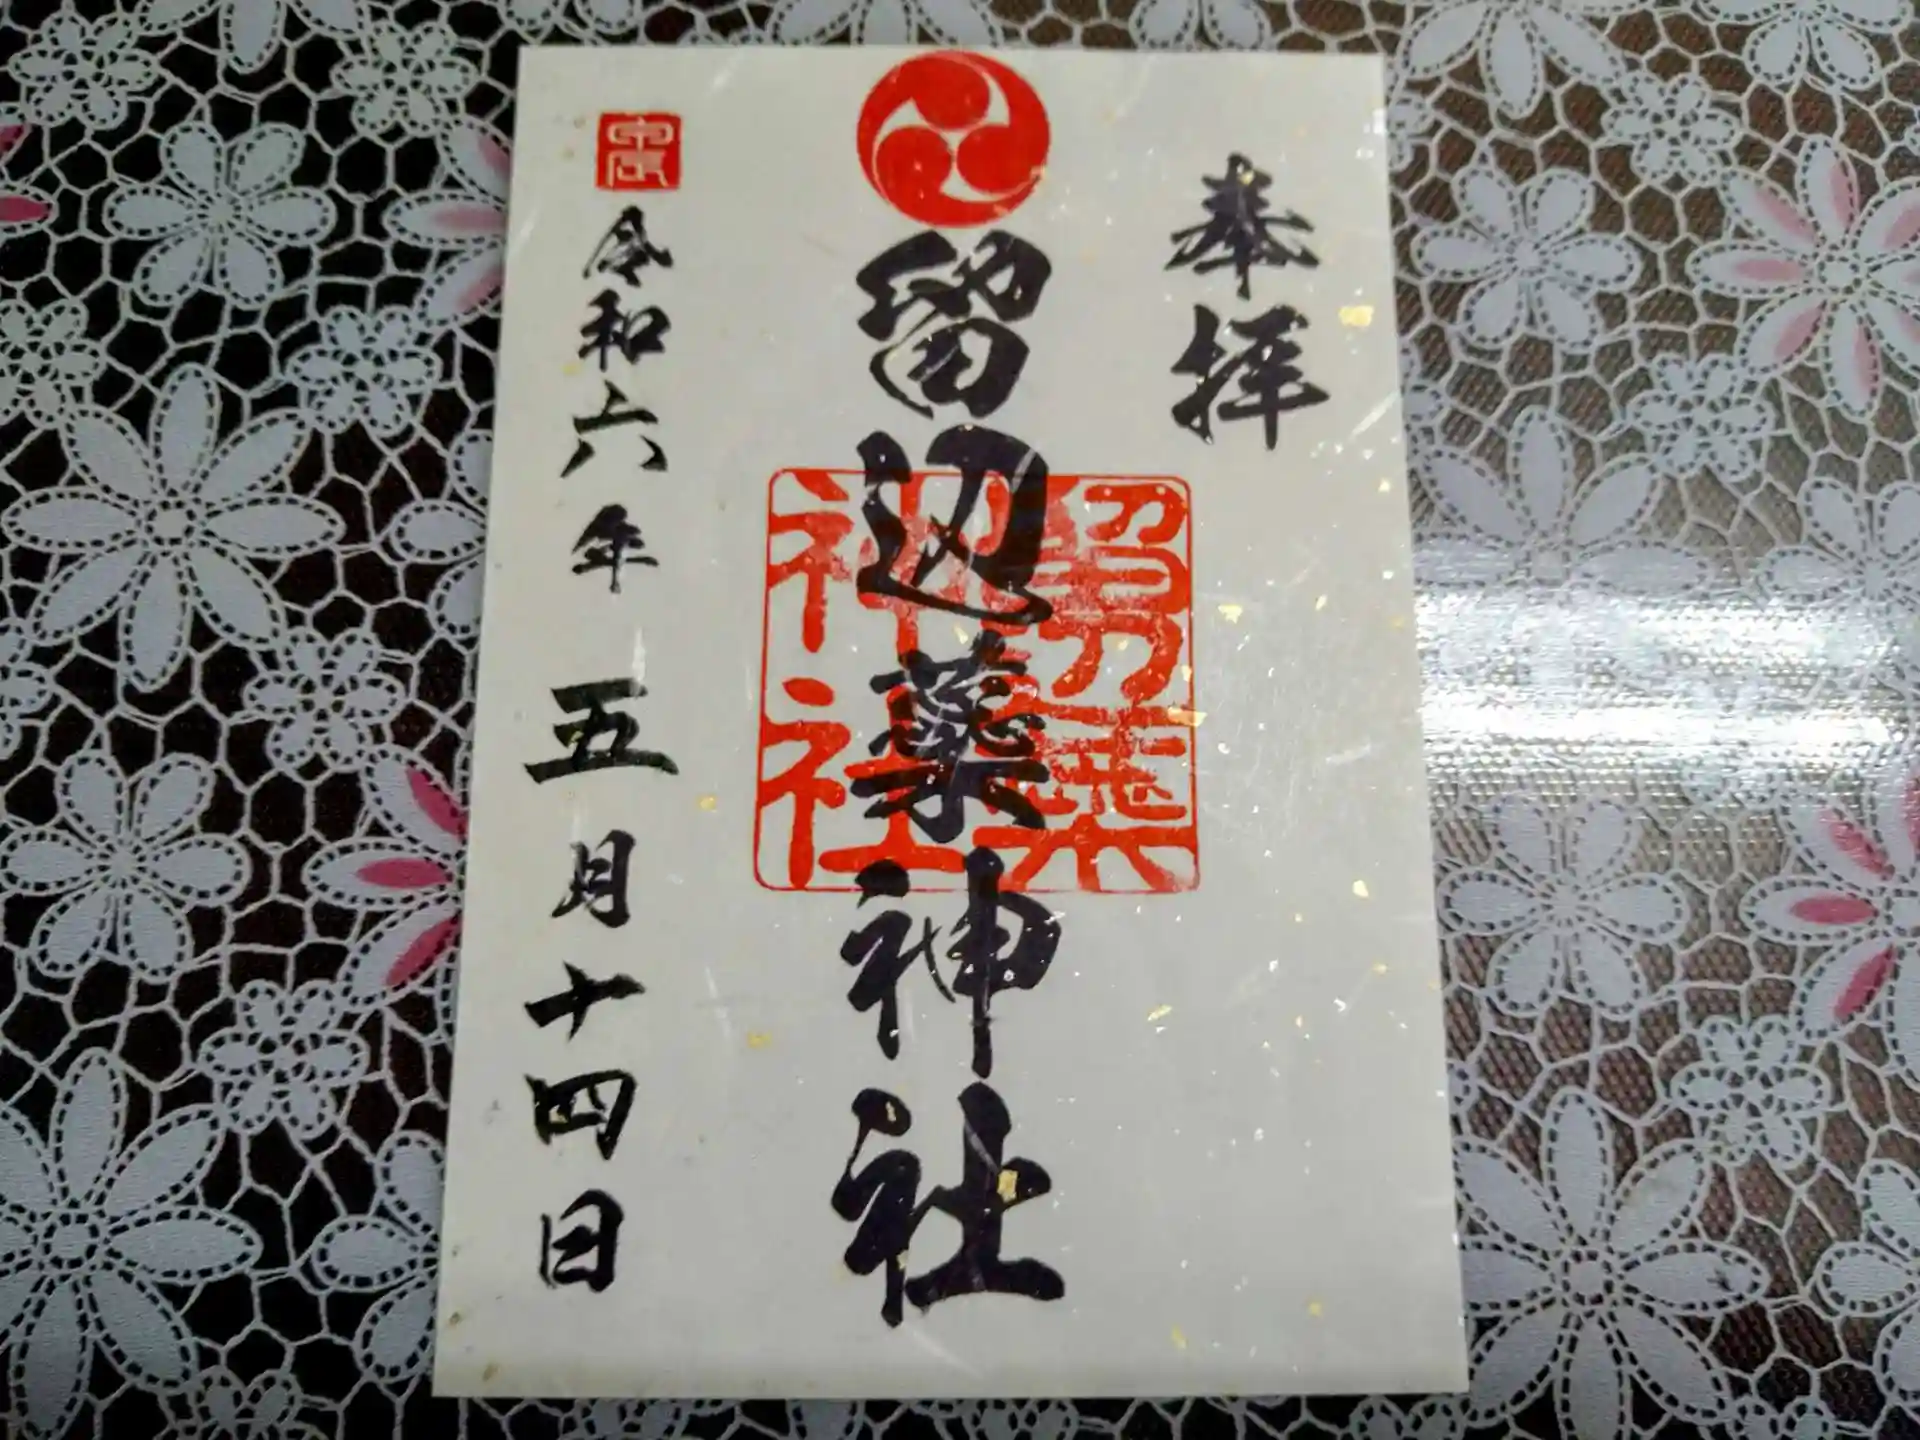 奉拝
留辺蘂神社
留辺蘂
神社
令和六年五月十四日